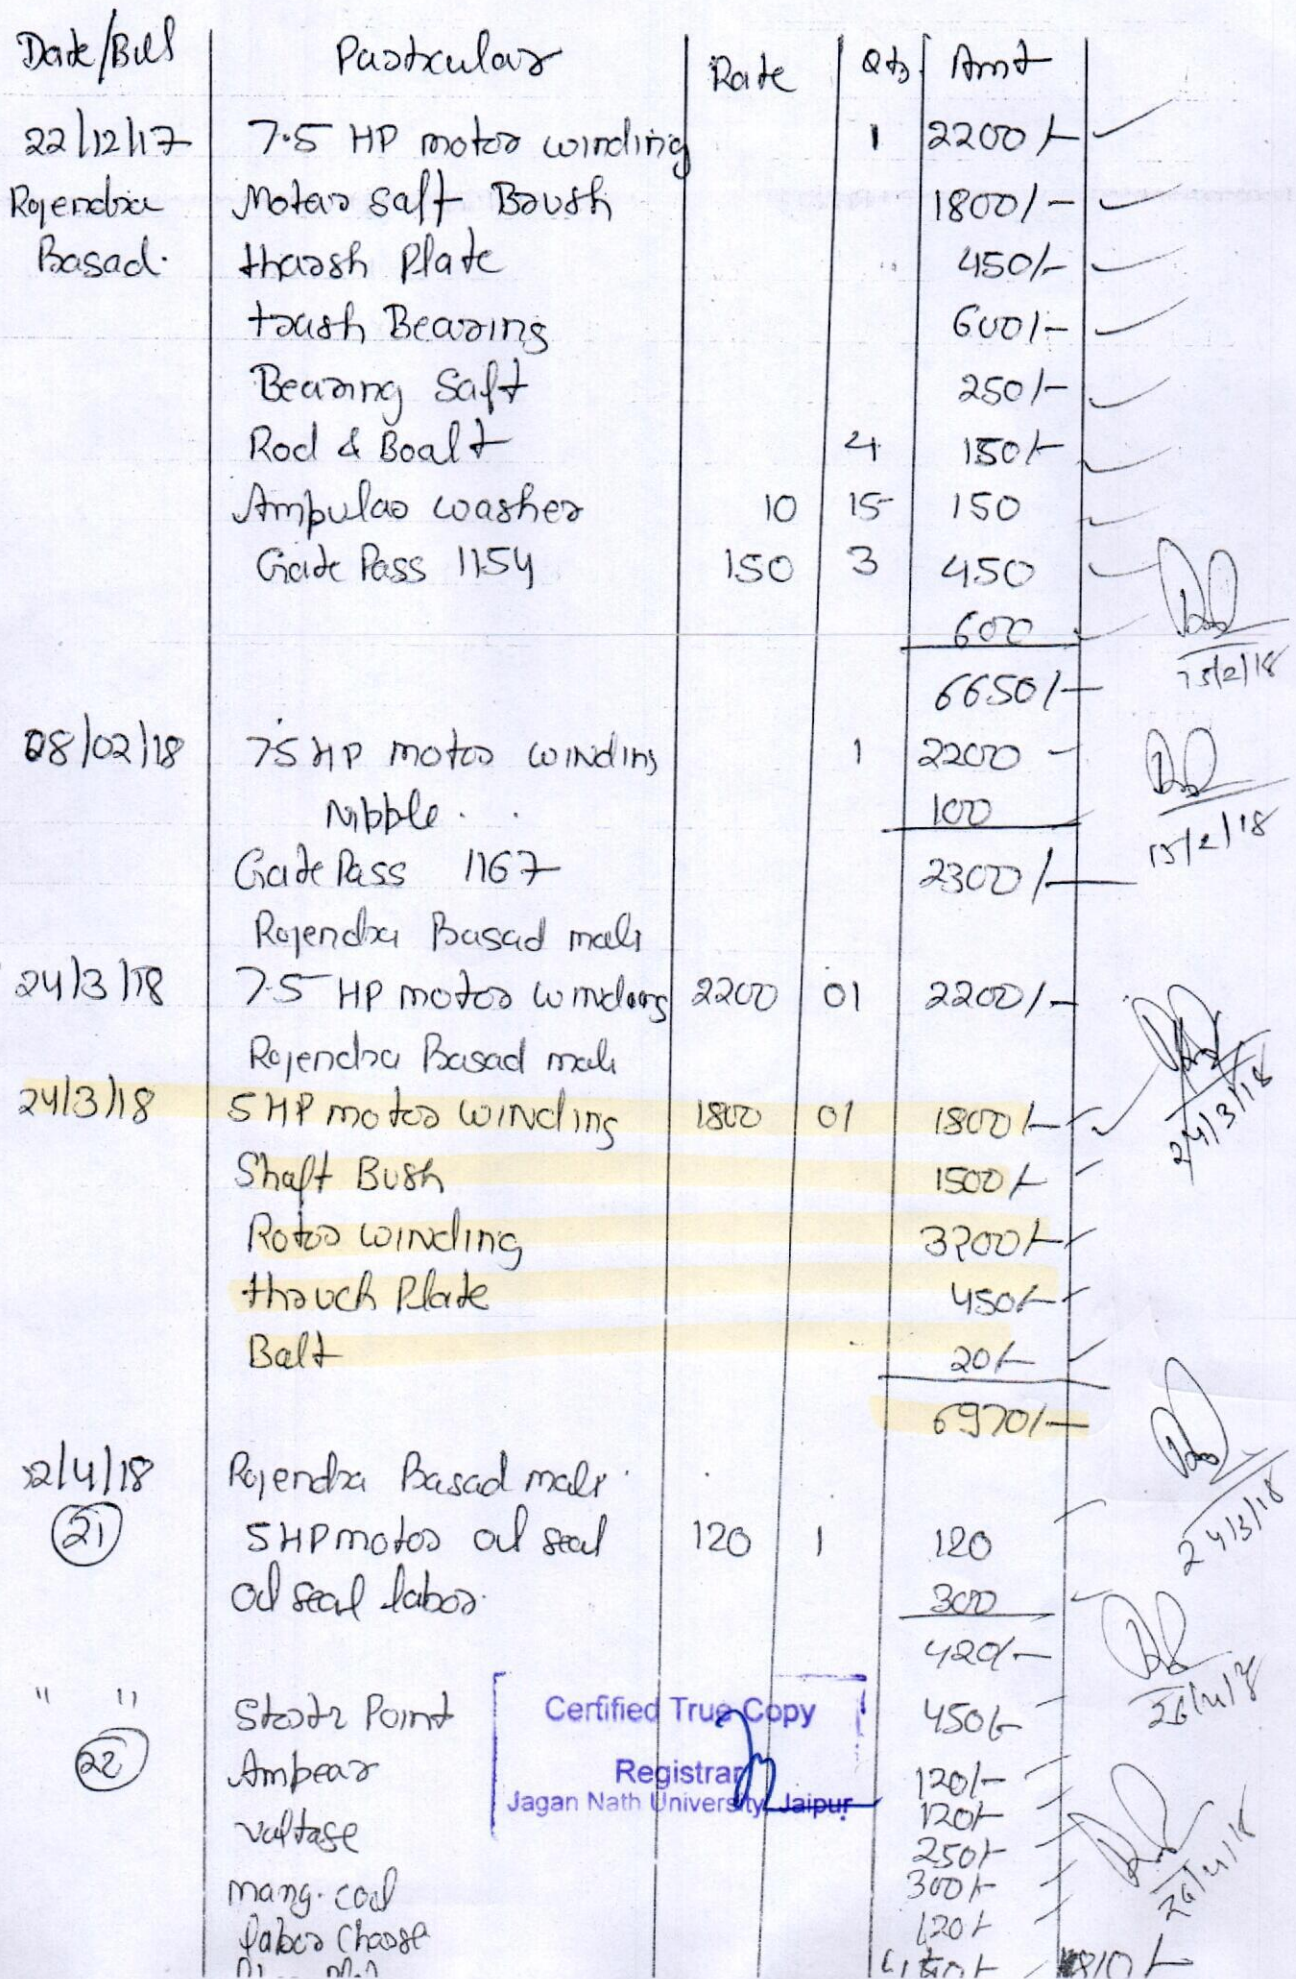 Date/Bill Particular Rate Qty. Amt
22/12/17 7.5 HP motor winding 1 2200/-
Rajendra Motor Saft Brush 1800/-
Basad. tharsh Plate 450/-
trash Bearing 600/-
Bearing Saft 250/-
Rod & Boalt 4 150/-
Ampular washer 10 15 150
Gate Pass 1154 150 3 450
600
15/2/18
6650/-
08/02/18 75 HP motor winding 1 2200
Nibble. 100
15/2/18
Gate Pass 1167 2300/-
Rajendra Basad mali
24/3/18 7.5 HP motor windong 2200 01 2200/-
Rajendra Basad mali
24/3/18
24/3/18 5 HP motor winding 1800 01 1800/-
Shaft Bush 1500/-
Rotor winding 3200/-
throuch Plate 450/-
Balt 20/-
6970/-
24/3/18
2/4/18 Rajendra Basad mali
21 5 HP motor oil seal 120 1 120
oil seal labor. 300
420/-
" " Statr Point 450/-
22 Ampear 120/-
valtage 120/-
250/-
mang. coil 300/-
labor Charge 120/-
Certified True Copy
Registrar
Jagan Nath University, Jaipur